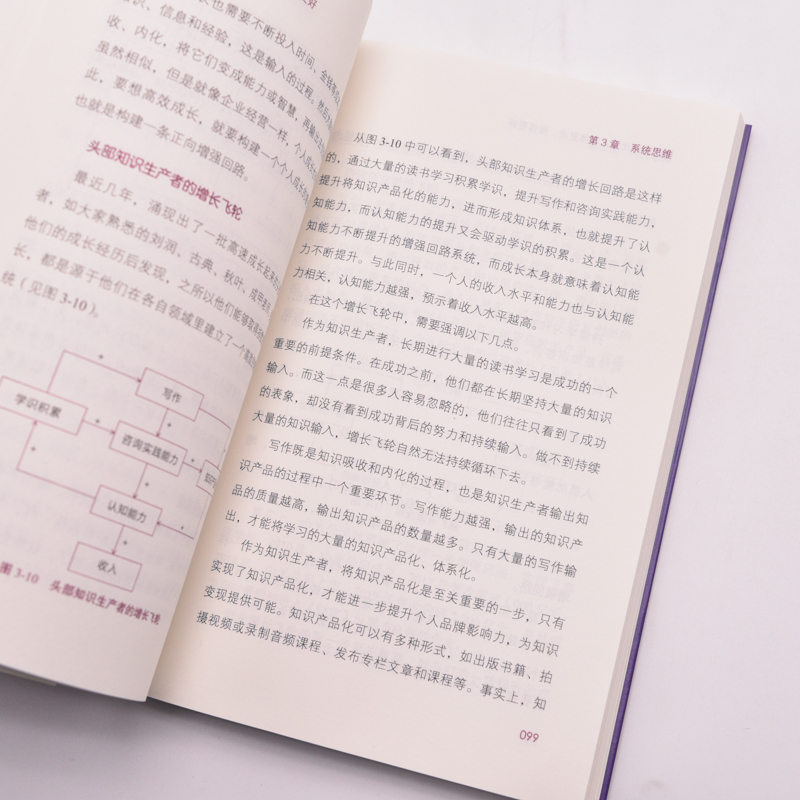 也需要不断投入时间、金钱
识、信息和经验，这是输入的过程。
收、内化，将它们变成能力或智慧，再
虽然相似，但是就像企业经营一样，个人
此，要想高效成长，就要构建一个个人成长
也就是构建一条正向增强回路。
头部知识生产者的增长飞轮
最近几年，涌现出了一批高速成长起来的
者，如大家熟悉的刘润、古典、秋叶、成甲
他们的成长经历后发现，之所以他们能够
长，都是源于他们在各自领域里建立了一个
统（见图 3-10）。
写作
学识积累
咨询实践能力
认知能力
收入
图 3-10 头部知识生产者的增长飞轮
第 3 章 系统思维
从图 3-10 中可以看到，头部知识生产者的增长回路是这样
的，通过大量的读书学习积累学识，提升写作和咨询实践能力，
提升将知识产品化的能力，进而形成知识体系，也就提升了认
知能力，而认知能力的提升又会驱动学识的积累。这是一个认
知能力不断提升的增强回路系统，而成长本身就意味着认知能
力不断提升。与此同时，一个人的收入水平和能力也与认知能
力相关，认知能力越强，预示着收入水平越高。
在这个增长飞轮中，需要强调以下几点。
作为知识生产者，长期进行大量的读书学习是成功的一个
重要的前提条件。在成功之前，他们都在长期坚持大量的知识
输入。而这一点是很多人容易忽略的，他们往往只看到了成功
的表象，却没有看到成功背后的努力和持续输入。做不到持续
大量的知识输入，增长飞轮自然无法持续循环下去。
写作既是知识吸收和内化的过程，也是知识生产者输出知
识产品的过程中一个重要环节。写作能力越强，输出的知识产
品的质量越高，输出知识产品的数量越多。只有大量的写作输
出，才能将学习的大量的知识产品化、体系化。
作为知识生产者，将知识产品化是至关重要的一步，只有
实现了知识产品化，才能进一步提升个人品牌影响力，为知识
变现提供可能。知识产品化可以有多种形式，如出版书籍、拍
摄视频或录制音频课程、发布专栏文章和课程等。事实上，知
099